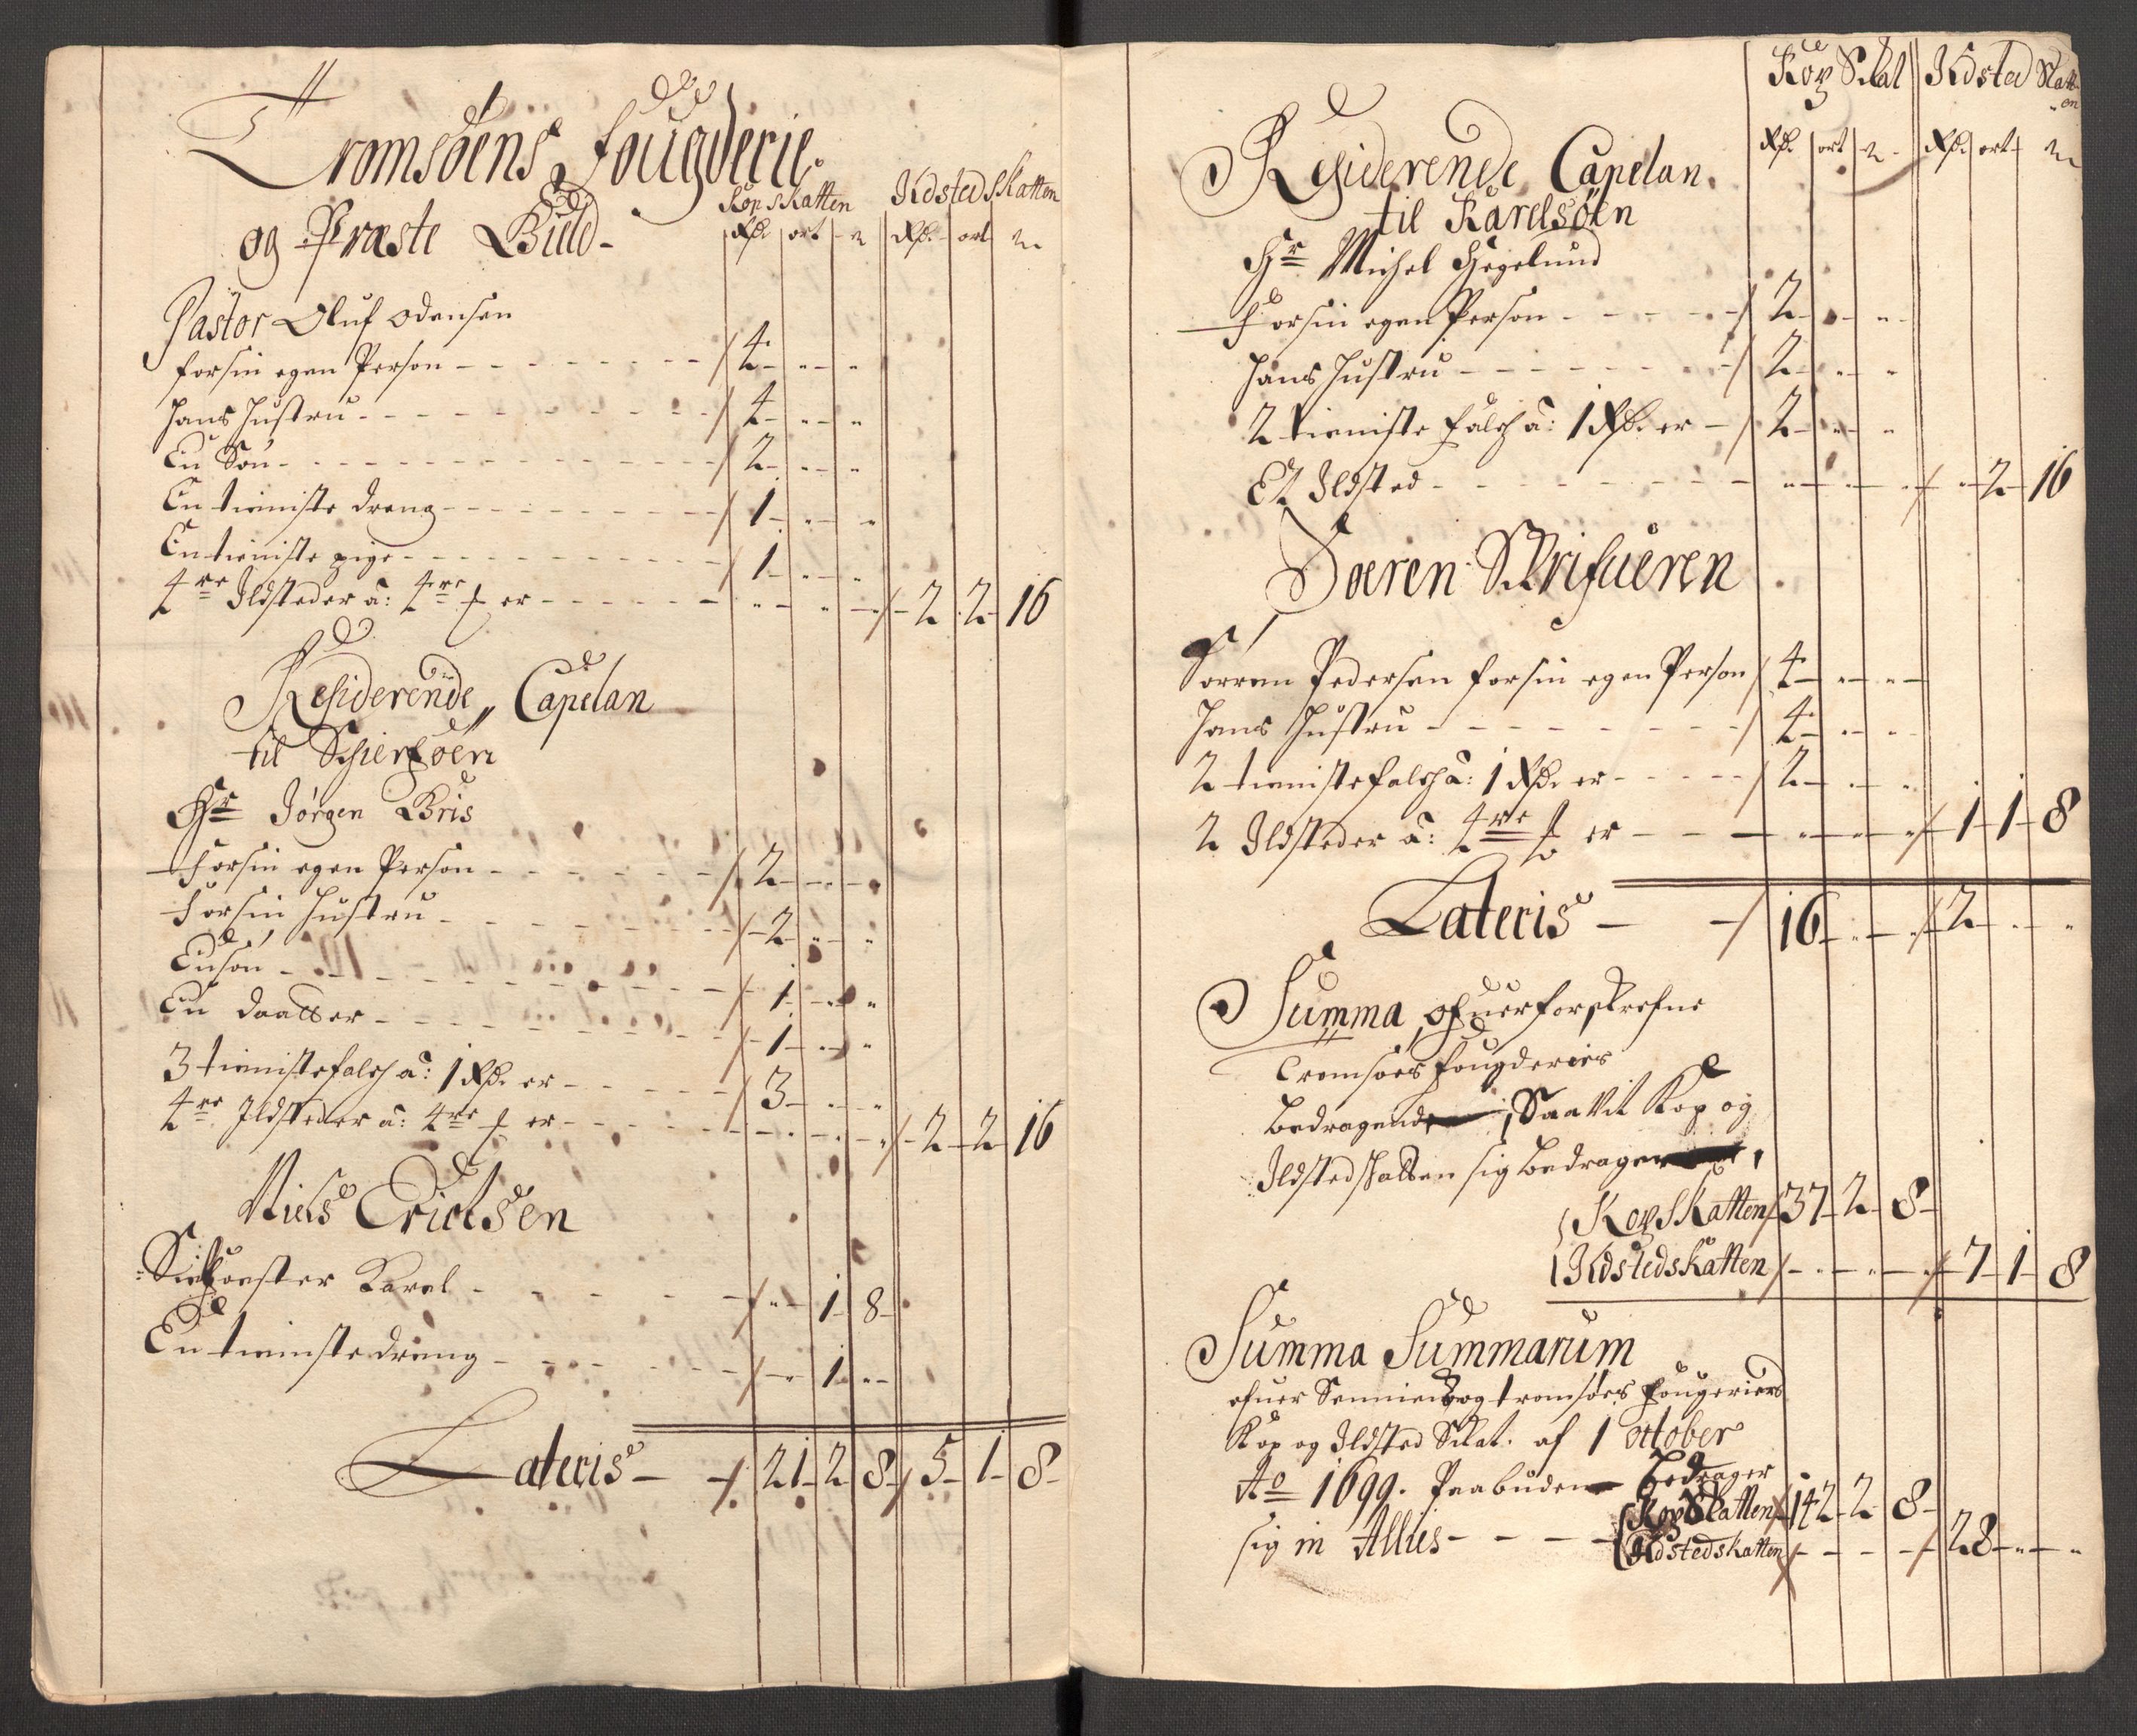 Tromsøens fougderie
og Præste Build-
Kopskatten Ildstedskatten
Rdr ort Rdr ort
Pastor Oluf Odensen
for sin egen Person - 4 - " - "
Hans Hustru - 4 - " - "
En Søn - 2 - " - "
En tieniste dreng - 1 - " - "
En tieniste pige - 1 - " - "
4re Ildsteder a: 4re er - " - " - 2 2 16
Residerende Capelan
til
Hr Jørgen Bris
for sin egen Person - 2 - " - "
for sin Hustru - 2 - " - "
En søn - 1 - " - "
En daatter - 1 - " - "
3 tieniste folch a: 1 Rdr er - 3 - " - "
4re Ildsteder a: 4re er - " - " - 2 - 2 16
Niels Erichsen
Karel - " - 1 8
En tieniste dreng - " 1 - "
Lateris - 21 - 2 8 5 - 1 - 8
Kop Skat Ildsted Skatten
Rdr ort Rdr ort
Residerende Capelan
til Karelsøen
Hr Michel Hegelund
for sin egen Person - 2 - " - "
Hans Hustru - 2 - " - "
2 tieniste folch a: 1 Rdr er - 2 - " - "
Et Ildsted - " - " - " - 2 - 16
Soeren Skrifueren
Sorren Pedersen for sin egen Person 4 - " - "
Hans Hustru - 4 - " - "
2 tieniste folch a: 1 Rdr er - 2 - " - "
2 Ildsteder a: 4re er - " - " - 1 - 1 - 8
Lateris - 16 - " - 2 - " - "
Summa ofuerforskrefne
Tromsøes fougderies
Bedragende Saa vit Kop og
Ildstedskatten sig bedrager
Kopskatten 37 - 2 - 8
Ildstedskatten - " - " - 7 - 1 - 8
Summa Summarum
ofuer Senniens og tromsøes fougeriers
Kop og Ildsted Skat. af 1 October
Ao 1699. Paabuden Bedrager
sig in Alles - Kopskatten 142 - 2 - 8
Ildstedskatten - 28 - " - "